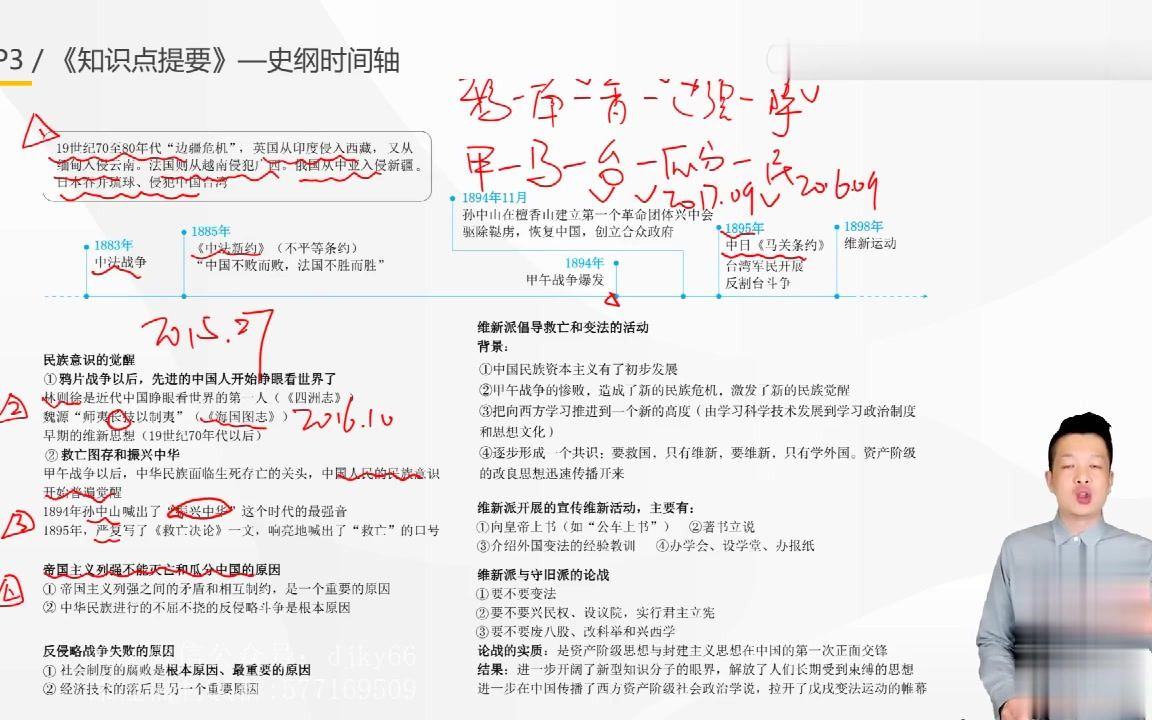 P3 / 《知识点提要》—史纲时间轴
鸦-南-香-
甲-马-台-瓜分-民
2017.09 2016.09
19世纪70至80年代“边疆危机”，英国从印度侵入西藏，又从
缅甸入侵云南。法国则从越南侵犯广西。俄国从中亚入侵新疆。
日本吞并琉球、侵犯中国台湾
1883年
中法战争
1885年
《中法新约》（不平等条约）
“中国不败而败，法国不胜而胜”
1894年11月
孙中山在檀香山建立第一个革命团体兴中会
驱除鞑虏，恢复中国，创立合众政府
1894年
甲午战争爆发
1895年
中日《马关条约》
台湾军民开展
反割台斗争
1898年
维新运动
2015.27
民族意识的觉醒
①鸦片战争以后，先进的中国人开始睁眼看世界了
林则徐是近代中国睁眼看世界的第一人（《四洲志》）
魏源“师夷长技以制夷”（《海国图志》）
2016.10
早期的维新思想（19世纪70年代以后）
②救亡图存和振兴中华
甲午战争以后，中华民族面临生死存亡的关头，中国人民的民族意识
开始普遍觉醒
1894年孙中山喊出了“振兴中华”这个时代的最强音
1895年，严复写了《救亡决论》一文，响亮地喊出了“救亡”的口号
帝国主义列强不能灭亡和瓜分中国的原因
①帝国主义列强之间的矛盾和相互制约，是一个重要的原因
②中华民族进行的不屈不挠的反侵略斗争是根本原因
反侵略战争失败的原因
①社会制度的腐败是根本原因、最重要的原因
②经济技术的落后是另一个重要原因
维新派倡导救亡和变法的活动
背景：
①中国民族资本主义有了初步发展
②甲午战争的惨败，造成了新的民族危机，激发了新的民族觉醒
③把向西方学习推进到一个新的高度（由学习科学技术发展到学习政治制度
和思想文化）
④逐步形成一个共识：要救国，只有维新，要维新，只有学外国。资产阶级
的改良思想迅速传播开来
维新派开展的宣传维新活动，主要有：
①向皇帝上书（如“公车上书”） ②著书立说
③介绍外国变法的经验教训 ④办学会、设学堂、办报纸
维新派与守旧派的论战
①要不要变法
②要不要兴民权、设议院，实行君主立宪
③要不要废八股、改科举和兴西学
论战的实质：是资产阶级思想与封建主义思想在中国的第一次正面交锋
结果：进一步开阔了新型知识分子的眼界，解放了人们长期受到束缚的思想
进一步在中国传播了西方资产阶级社会政治学说，拉开了戊戌变法运动的帷幕
djky66
577169509